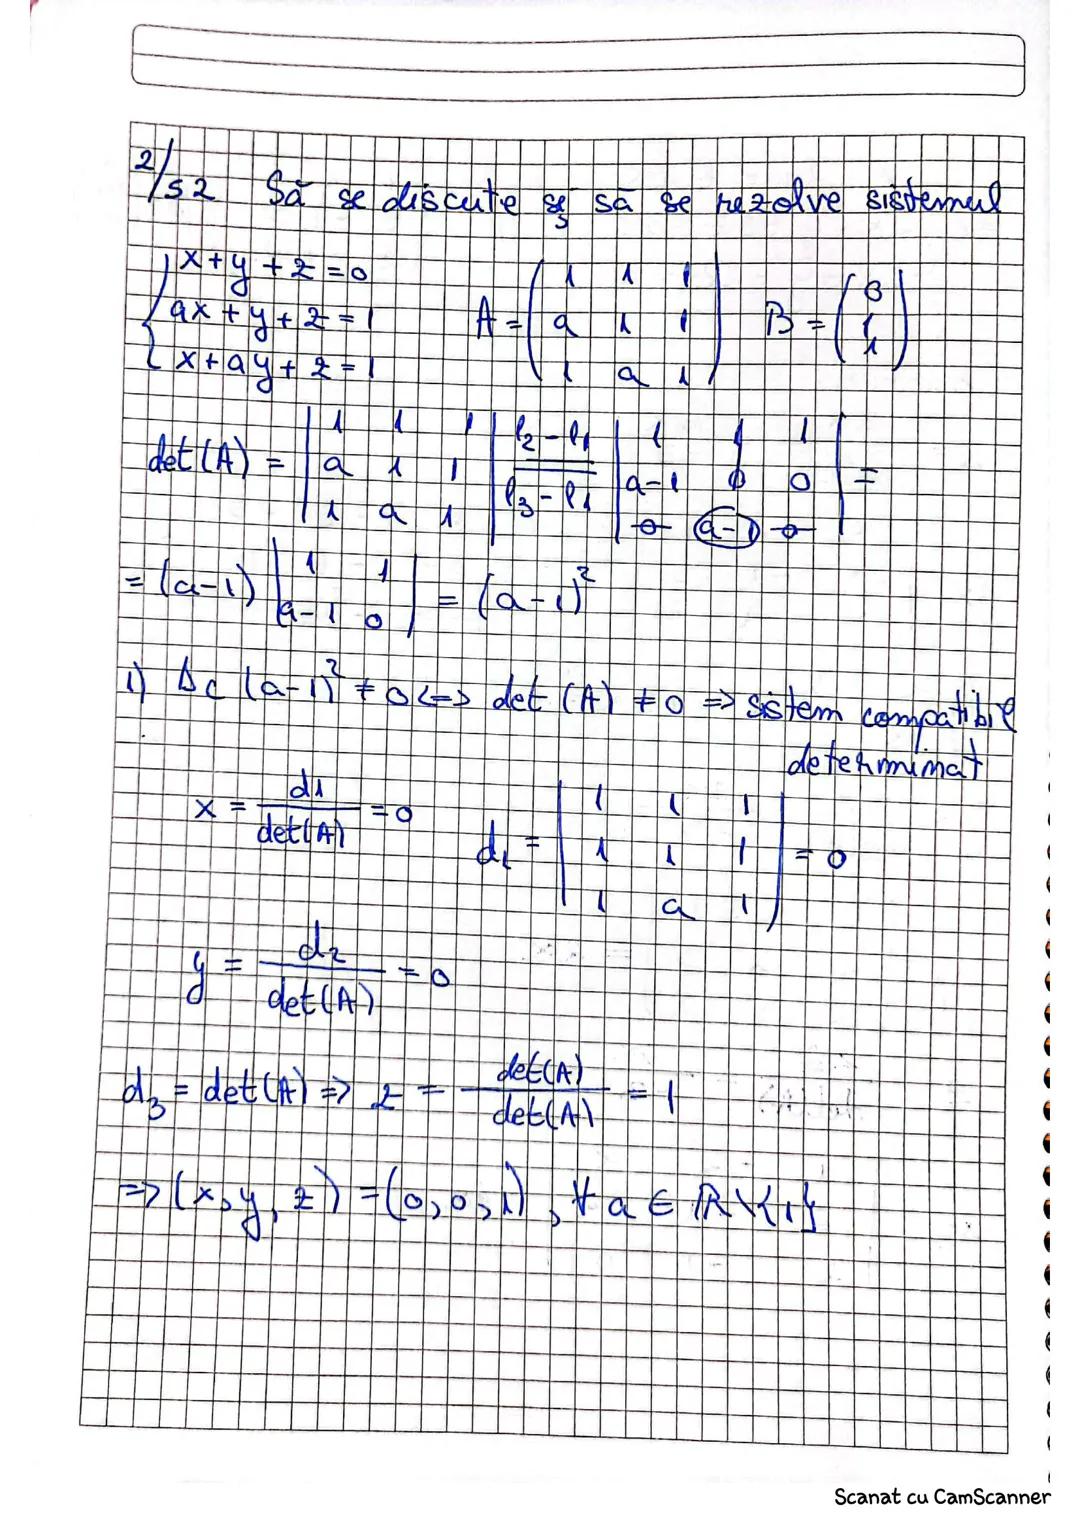 2/S2 Să se discute și să se rezolve sistemul
x+y+z=0
ax+y+z=1
x+ay+z=1
A = ( 1 1 1
a 1 1
1 a 1 )
B = ( 0
1
1 )
det(A) = | 1 1 1
a 1 1
1 a 1 |
l2-l1
l3-l1
| 1 1 1
a-1 0 0
0 a-1 0 | =
= (a-1) | 1 1
a-1 0 | = (a-1)²
1) Dc (a-1)² ≠ 0 <=> det(A) ≠ 0 => sistem compatibil
determinat
x = d1/det(A) = 0
d1 = | 1 1 1
1 1 1
1 a 1 | = 0
y = d2/det(A) = 0
d3 = det(A) => z = det(A)/det(A) = 1
=> (x, y, z) = (0, 0, 1), ∀ a ∈ R\{1}
Scanat cu CamScanner